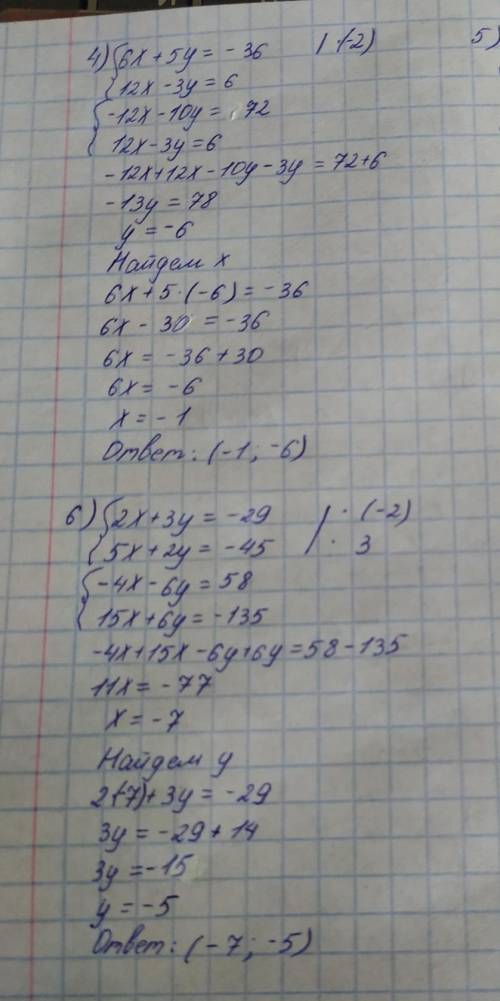 4) { 6x + 5y = -36 | ·(-2) 5)
12x - 3y = 6
{ -12x - 10y = 72
12x - 3y = 6
-12x + 12x - 10y - 3y = 72 + 6
-13y = 78
y = -6
Найдем x
6x + 5·(-6) = -36
6x - 30 = -36
6x = -36 + 30
6x = -6
x = -1
Ответ: (-1; -6)
6) { 2x + 3y = -29 | · (-2)
5x + 2y = -45 | · 3
{ -4x - 6y = 58
15x + 6y = -135
-4x + 15x - 6y + 6y = 58 - 135
11x = -77
x = -7
Найдем y
2·(-7) + 3y = -29
3y = -29 + 14
3y = -15
y = -5
Ответ: (-7; -5)